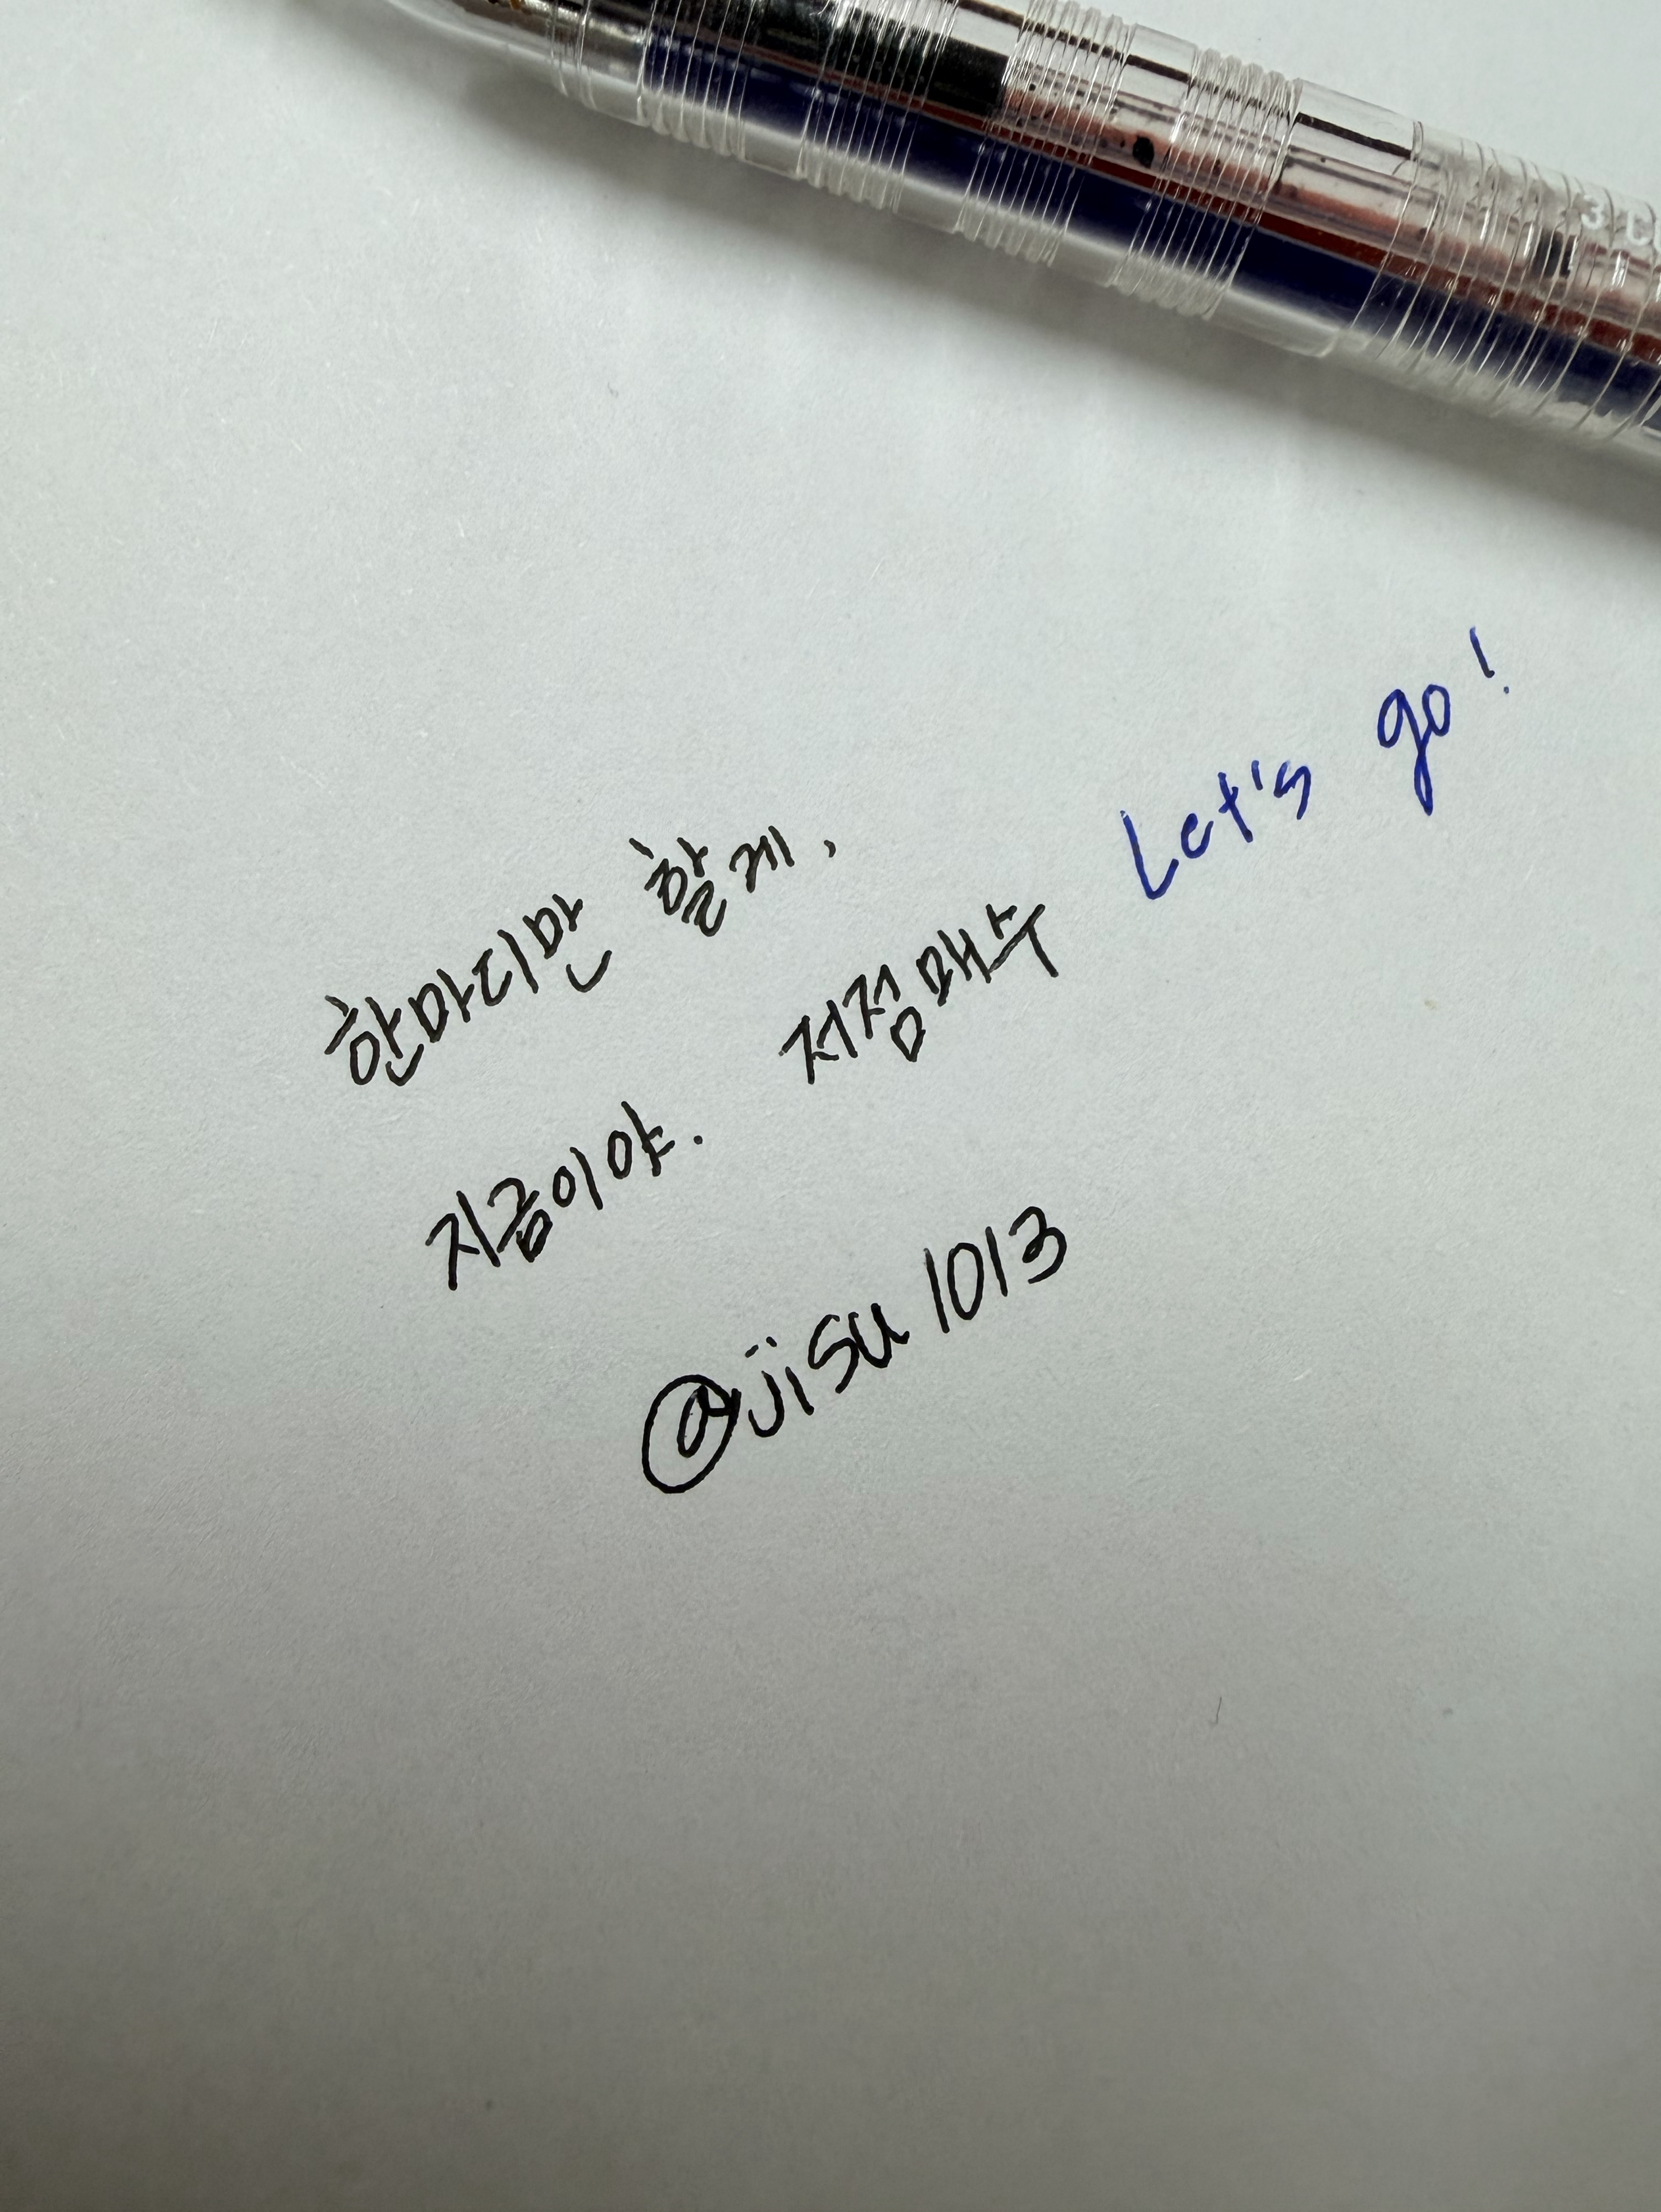 한마디만 할게,
지금이야. 저점매수 Let's go!
@jisu1013